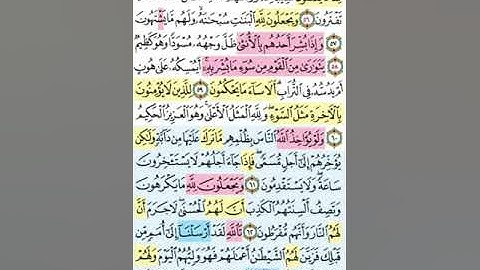 تَفْتَرُونَ ٥٦ وَيَجْعَلُونَ لِلَّهِ ٱلْبَنَٰتِ سُبْحَٰنَهُۥ وَلَهُم مَّا يَشْتَهُونَ
٥٧ وَإِذَا بُشِّرَ أَحَدُهُم بِٱلْأُنثَىٰ ظَلَّ وَجْهُهُۥ مُسْوَدًّا وَهُوَ كَظِيمٌ
٥٨ يَتَوَٰرَىٰ مِنَ ٱلْقَوْمِ مِن سُوٓءِ مَا بُشِّرَ بِهِۦٓ أَيُمْسِكُهُۥ عَلَىٰ هُونٍ
أَمْ يَدُسُّهُۥ فِى ٱلتُّرَابِ أَلَا سَآءَ مَا يَحْكُمُونَ ٥٩ لِلَّذِينَ لَا يُؤْمِنُونَ
بِٱلْءَاخِرَةِ مَثَلُ ٱلسَّوْءِ وَلِلَّهِ ٱلْمَثَلُ ٱلْأَعْلَىٰ وَهُوَ ٱلْعَزِيزُ ٱلْحَكِيمُ
٦٠ وَلَوْ يُؤَاخِذُ ٱللَّهُ ٱلنَّاسَ بِظُلْمِهِم مَّا تَرَكَ عَلَيْهَا مِن دَآبَّةٍ وَلَٰكِن
يُؤَخِّرُهُمْ إِلَىٰٓ أَجَلٍ مُّسَمًّى فَإِذَا جَآءَ أَجَلُهُمْ لَا يَسْتَـْٔخِرُونَ
سَاعَةً وَلَا يَسْتَقْدِمُونَ ٦١ وَيَجْعَلُونَ لِلَّهِ مَا يَكْرَهُونَ
وَتَصِفُ أَلْسِنَتُهُمُ ٱلْكَذِبَ أَنَّ لَهُمُ ٱلْحُسْنَىٰ لَا جَرَمَ أَنَّ
لَهُمُ ٱلنَّارَ وَأَنَّهُم مُّفْرَطُونَ ٦٢ تَٱللَّهِ لَقَدْ أَرْسَلْنَآ إِلَىٰٓ أُمَمٍ مِّن
قَبْلِكَ فَزَيَّنَ لَهُمُ ٱلشَّيْطَٰنُ أَعْمَٰلَهُمْ فَهُوَ وَلِيُّهُمُ ٱلْيَوْمَ وَلَهُمْ